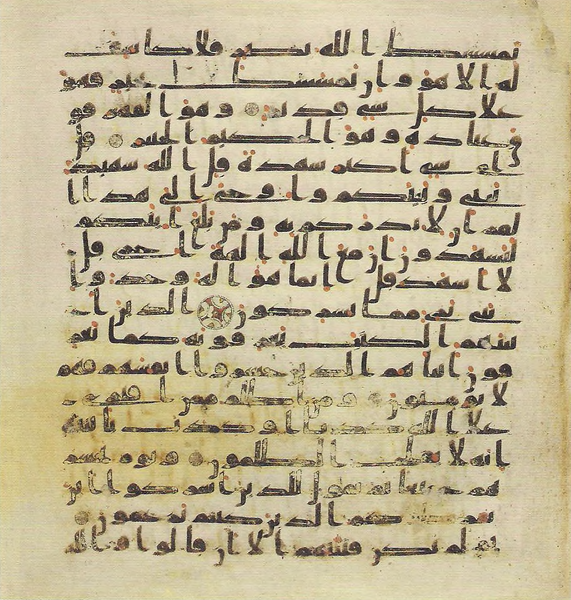 يمسسك الله بضر فلا كاشف
له الا هو وان يمسسك بخير فهو
على كل شي قدير وهو القهر فو
ق عباده وهو الحكيم الخبير قل
اي شي اكبر شهدة قل الله شهيد
بيني وبينكم واوحي الي هذا ا
لقران لانذركم به ومن بلغ اينكم
لتشهدون ان مع الله الهة اخرى قل
لا اشهد قل انما هو اله وحد وا
نني بري مما تشركون الذين ا
تينهم الكتب يعرفونه كما يعر
فون ابناهم الذين خسروا انفسهم فهم
لا يومنون ومن اظلم ممن افترى
على الله كذبا او كذب بايته
انه لا يفلح الظلمون ويوم نحشر
هم جميعا ثم نقول للذين اشركوا اين
شركاوكم الذين كنتم تزعمون
ثم لم تكن فتنتهم الا ان قالوا والله